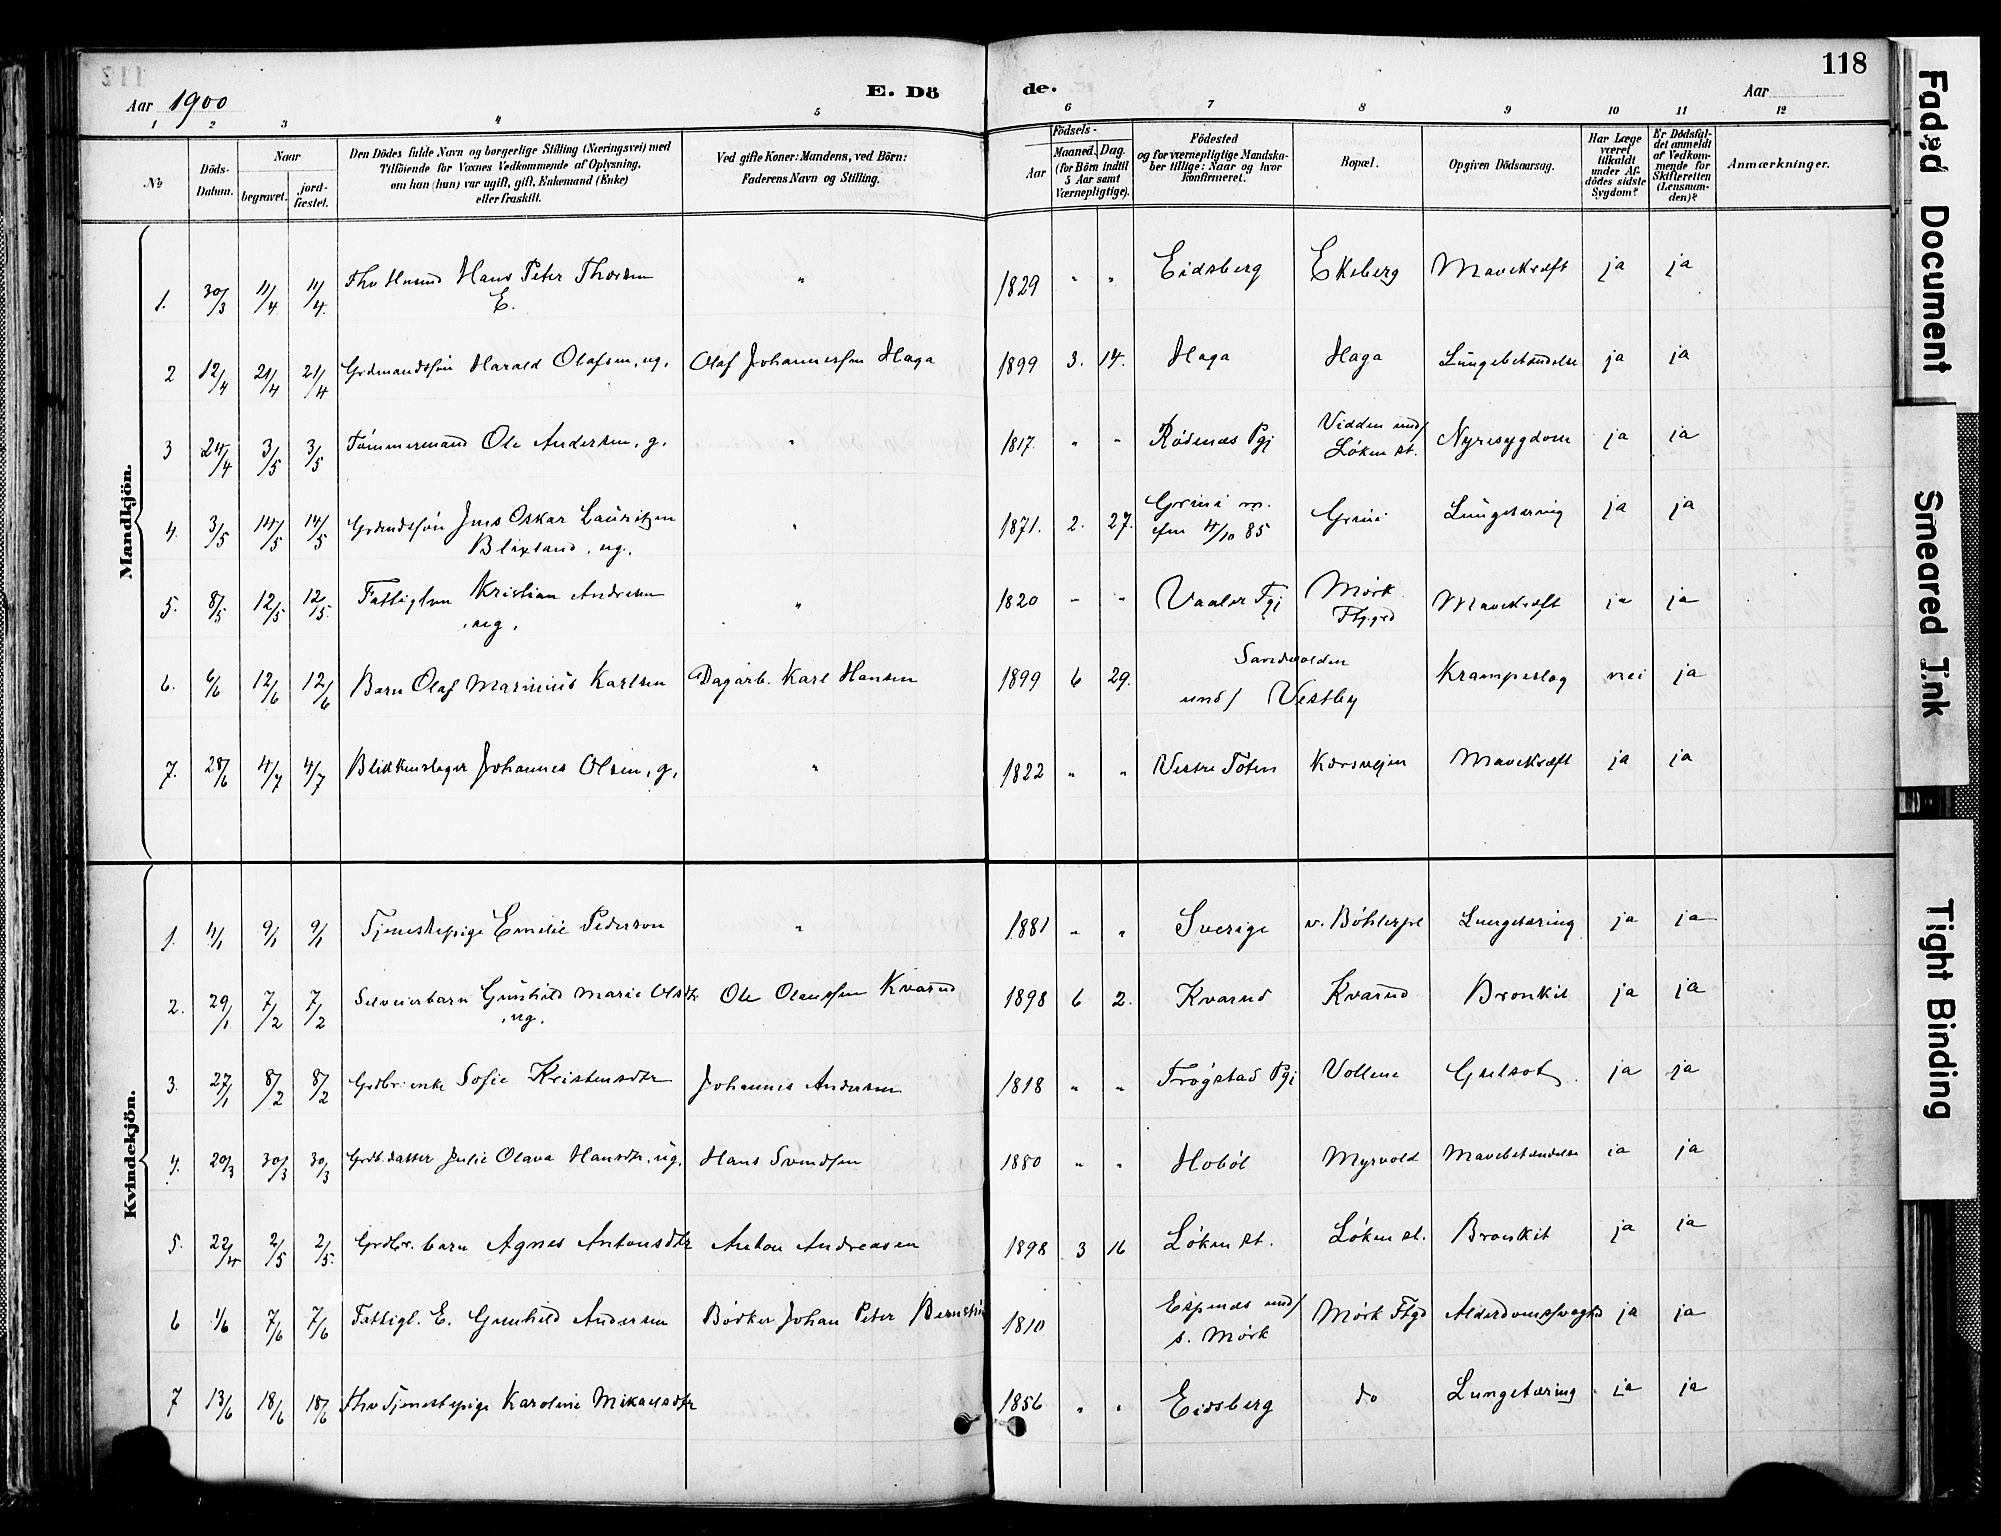 118
Aar 1900
E. Dö
de.
Aar
1 2 3 4 5 6 7 8 9 10 11 12
No
Döds-Datum.
Naar
begravet.
jord-fæstet.
Den Dödes fulde Navn og borgerlige Stilling (Næringsvei) med
Tilföiende for Voxnes Vedkommende af Oplysning,
om han (hun) var ugift, gift, Enkemand (Enke)
eller fraskilt.
Ved gifte Koner: Mandens, ved Börn:
Faderens Navn og Stilling.
Födsels-
Aar
Maaned. Dag.
(for Börn indtil
5 Aar samt
Værnepligtige).
Födested
og for værnepligtige Mandska-
ber tillige: Naar og hvor
konfirmeret.
Bopæl.
Opgiven Dödsaarsag.
Har Læge
været
tilkaldt
under Af-
dödes sidste
Sygdom?
Er Dödsfal-
det anmeldt
af Vedkom-
mende for
Skifteretten
(Lensman-
den)?
Anmærkninger.
Mandkjön.
1. 30/3 11/4 11/4 Hans Peter Thorsen " 1829 " " Eidsberg Ekeberg Mavekræft ja ja
E.
2 12/4 21/4 21/4 Grdmandssøn Harald Olafsen, ug. Olaf Johannessen Haga 1899 3. 14. Haga Haga Lungebetændelse ja ja
3 24/4 3/5 3/5 Tømmermand Ole Andersen, g. " 1817. " " Rødenæs Pgj Vidden und/ Løken st. Nyresygdom ja ja
4. 3/5 14/5 14/5 Jens Oskar Lauritzen " 1871. 2. 27. Grini 4/10 85 Grini Lungetæring ja ja
Blixland, ug.
5. 8/5 12/5 12/5 Fattiglem Kristian Andersen " 1820 " " Vaaler Pgj Mørk Ftg.grd Mavekræft ja ja
, ug.
6. 6/6 12/6 12/6 Barn Olaf Marinius Karlsen Dagarb. Karl Hansen 1899 6 29. Sandvolden und/ Vestby Krampeslag nei ja
7. 28/6 4/7 4/7 Blikkenslager Johannes Olsen, g. " 1822 " " Vestre Toten Korsvejen Mavekræft ja ja
Kvindekjön.
1. 4/1 9/1 9/1 Tjenestepige Emilie Pederson " 1881 " " Sverige Lungetæring ja ja
2. 29/1 7/2 7/2 Selveierbarn Gunhild Marie Olsdtr Ole Olaussen Kvarud 1898 6 2. Kvarud Kvarud Bronkit ja ja
, ug.
3. 27/1 8/2 8/2 Grdbr.enke Sofie Kristensdtr Johannes Andersen 1818 " " Trøgstad Pgj Vollene Gulsot. ja ja
4. 20/3 30/3 30/3 Grdb.datter Julie Olava Hansdtr, ug. Hans Svendsen 1880 " " Hobøl Myrvold Mavebetændelse ja ja
5. 22/4 2/5 2/5. Grdbr. barn Agnes Antonsdtr Anton Andreasen 1898 3 16 Løken st. Løken st. Bronkit ja ja
6 1/6 7/6 7/6 Fattigl. E. Gunhild Andersen Bødker Johan Peter 1810 Espenæs und/ s. Mørk Mørk Ftgd Alderdomssvaghd ja ja
7 13/6 18/6 18/6 Tjenestepige Karoline Mikaelsdtr 1856 " " Eidsberg do Lungetæring ja ja
Faded Document
Smeared Ink
Tight Binding